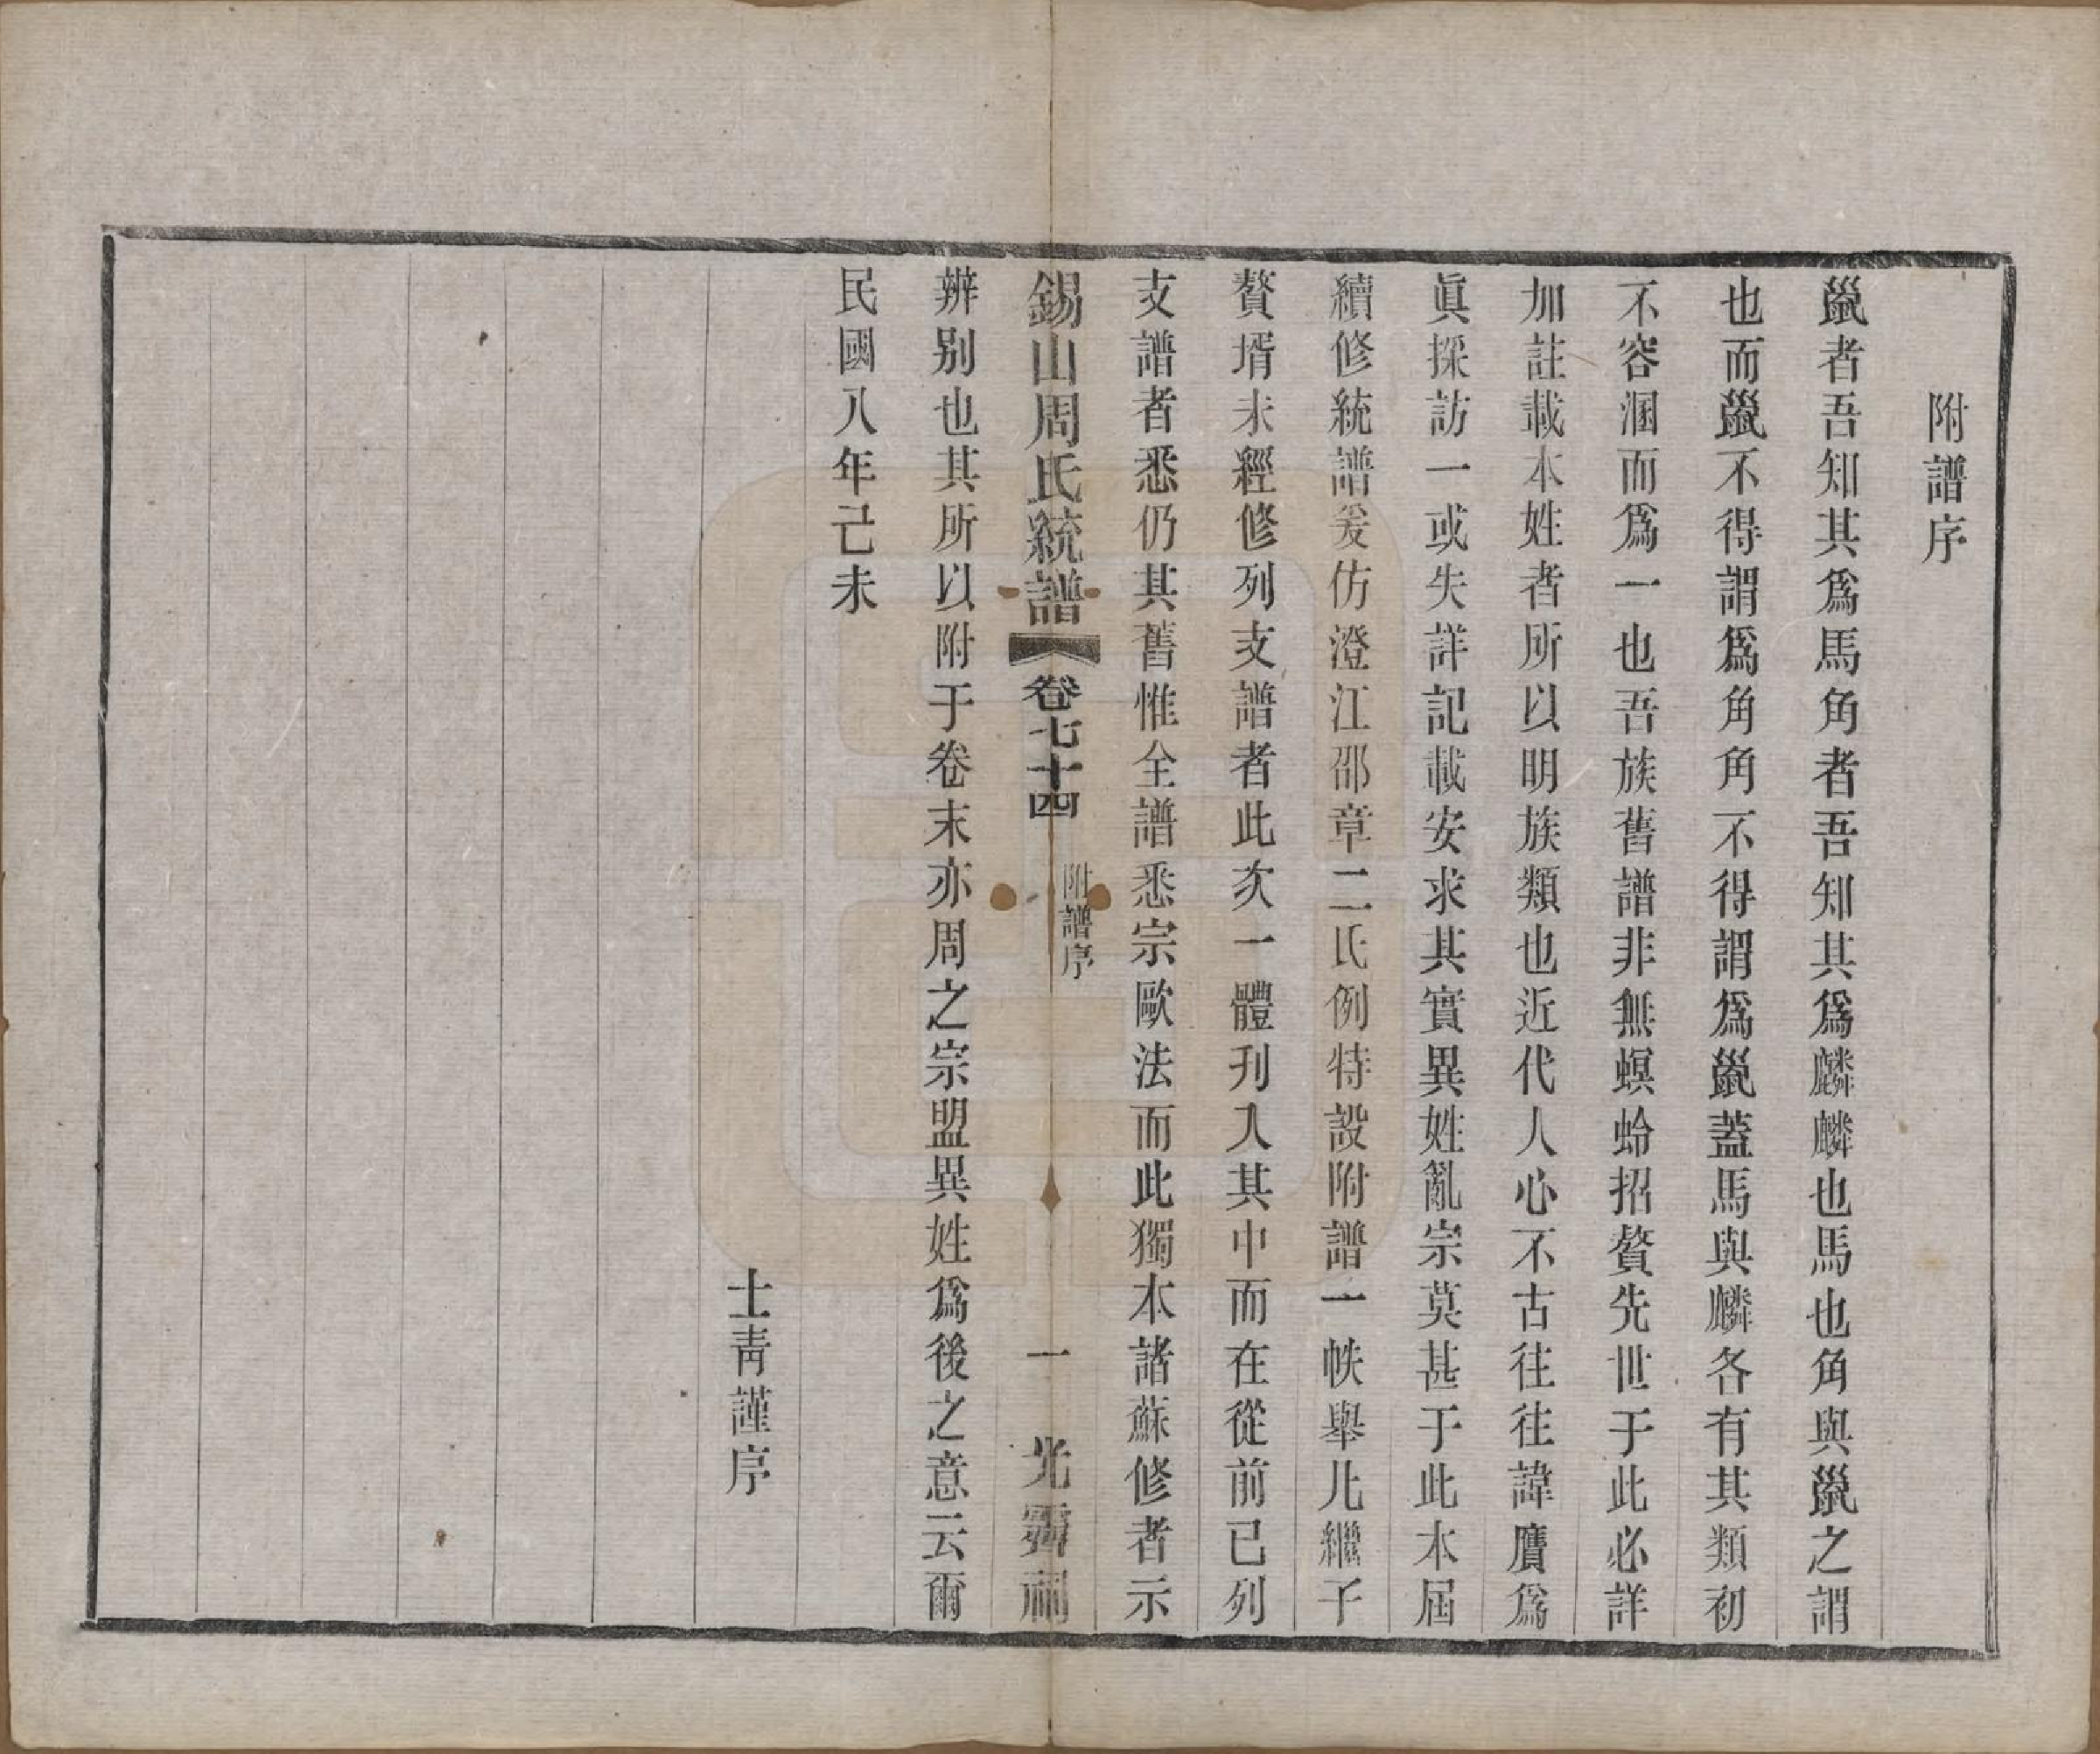 附譜序
鬣者吾知其爲馬角者吾知其爲麟麟也馬也角與鬣之謂
也而鬣不得謂爲角角不得謂爲鬣蓋馬與麟各有其類初
不容溷而爲一也吾族舊譜非無螟蛉招贅先世于此必詳
加註載本姓者所以明族類也近代人心不古往往諱贋爲
眞採訪一或失詳記載安求其實異姓亂宗莫甚于此本屆
續修統譜爰仿澄江邵章二氏例特設附譜一帙舉凡繼子
贅壻未經修列支譜者此次一體刊入其中而在從前已列
支譜者悉仍其舊惟全譜悉宗歐法而此獨本諸蘇修者示
錫山周氏統譜 卷七十四 附譜序 一 光霽祠
辨別也其所以附于卷末亦周之宗盟異姓爲後之意云爾
民國八年己未
士靑謹序